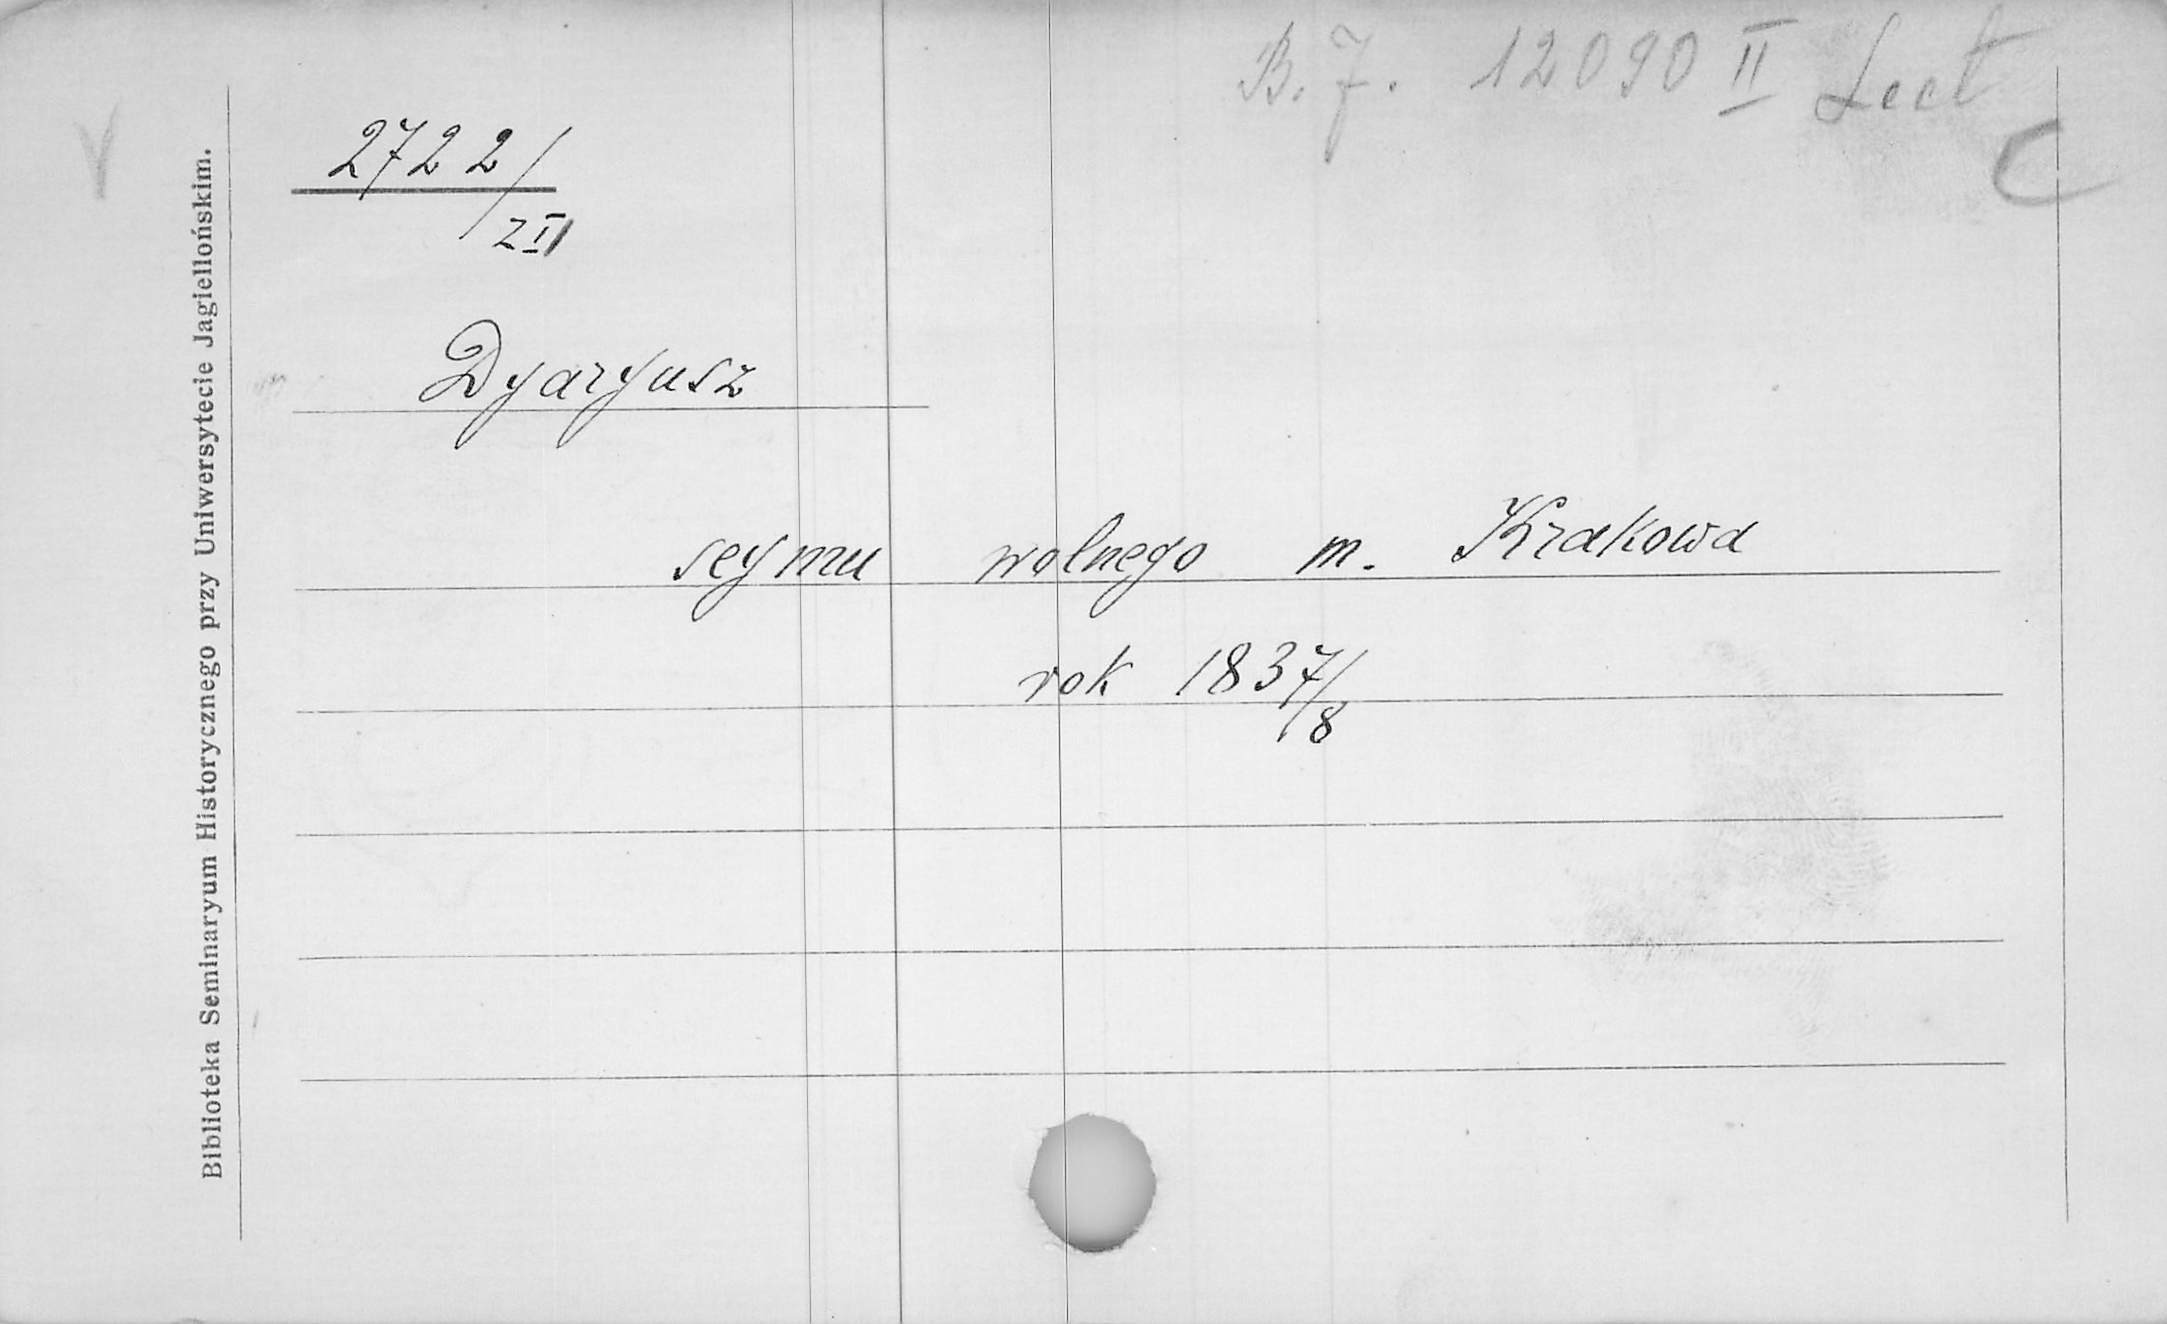 B. J. 12090 II Lect
C
V
2722/
ZII
Dyaryusz
seymu wolnego m. Krakowa
rok 1837/8
Biblioteka Seminaryum Historycznego przy Uniwersytecie Jagiellońskim.